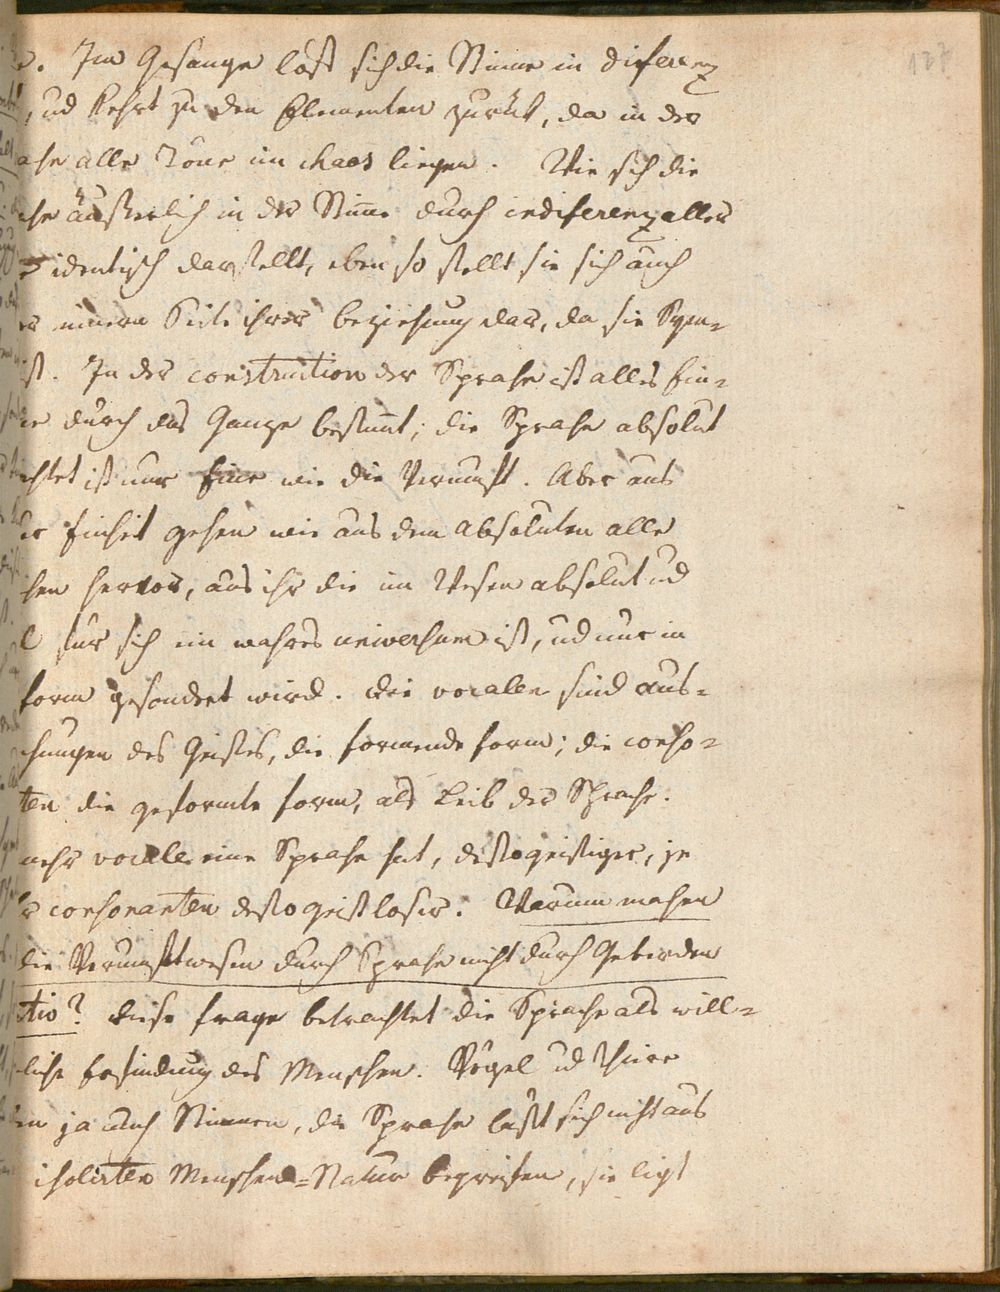 137
e. Im Gesange löst sich die Stimme in diferenz
, und kehrt zu den Elementen zurük, da in der
ache alle Töne im chaos liegen. Wie sich die
che äußerlich in der Stimme durch indiferenz aller
identisch darstellt, eben so stellt sie sich auch
er innern Seite ihrer beziehung dar, da sie Sym-
ist. In der construction der Sprache ist alles Ein-
ne durch das Ganze bestimmt; die Sprache absolut
achtet ist nur Eine wie die Vernunft. Aber aus
er Einheit gehen wie aus dem absoluten alle
chen hervor, aus ihr die im Wesen absolut und
für sich ein wahres universum ist, und nur in
form gesondert wird. Die vocalen sind aus-
chungen des Geistes, die formende form; die conso-
ten die geformte form, als Leib der Sprache.
mehr vocale eine Sprache hat, desto geistiger, je
r consonanten desto geistloser. Warum machen
die Vernunftwesen durch Sprache nicht durch Geberden
tio? Diese frage betrachtet die Sprache als will-
liche Erfindung des Menschen. Vögel und Thiere
en ja auch Stimmen, die Sprache läßt sich nicht aus
isolirten Menschen-Natur begreifen, sie ligt